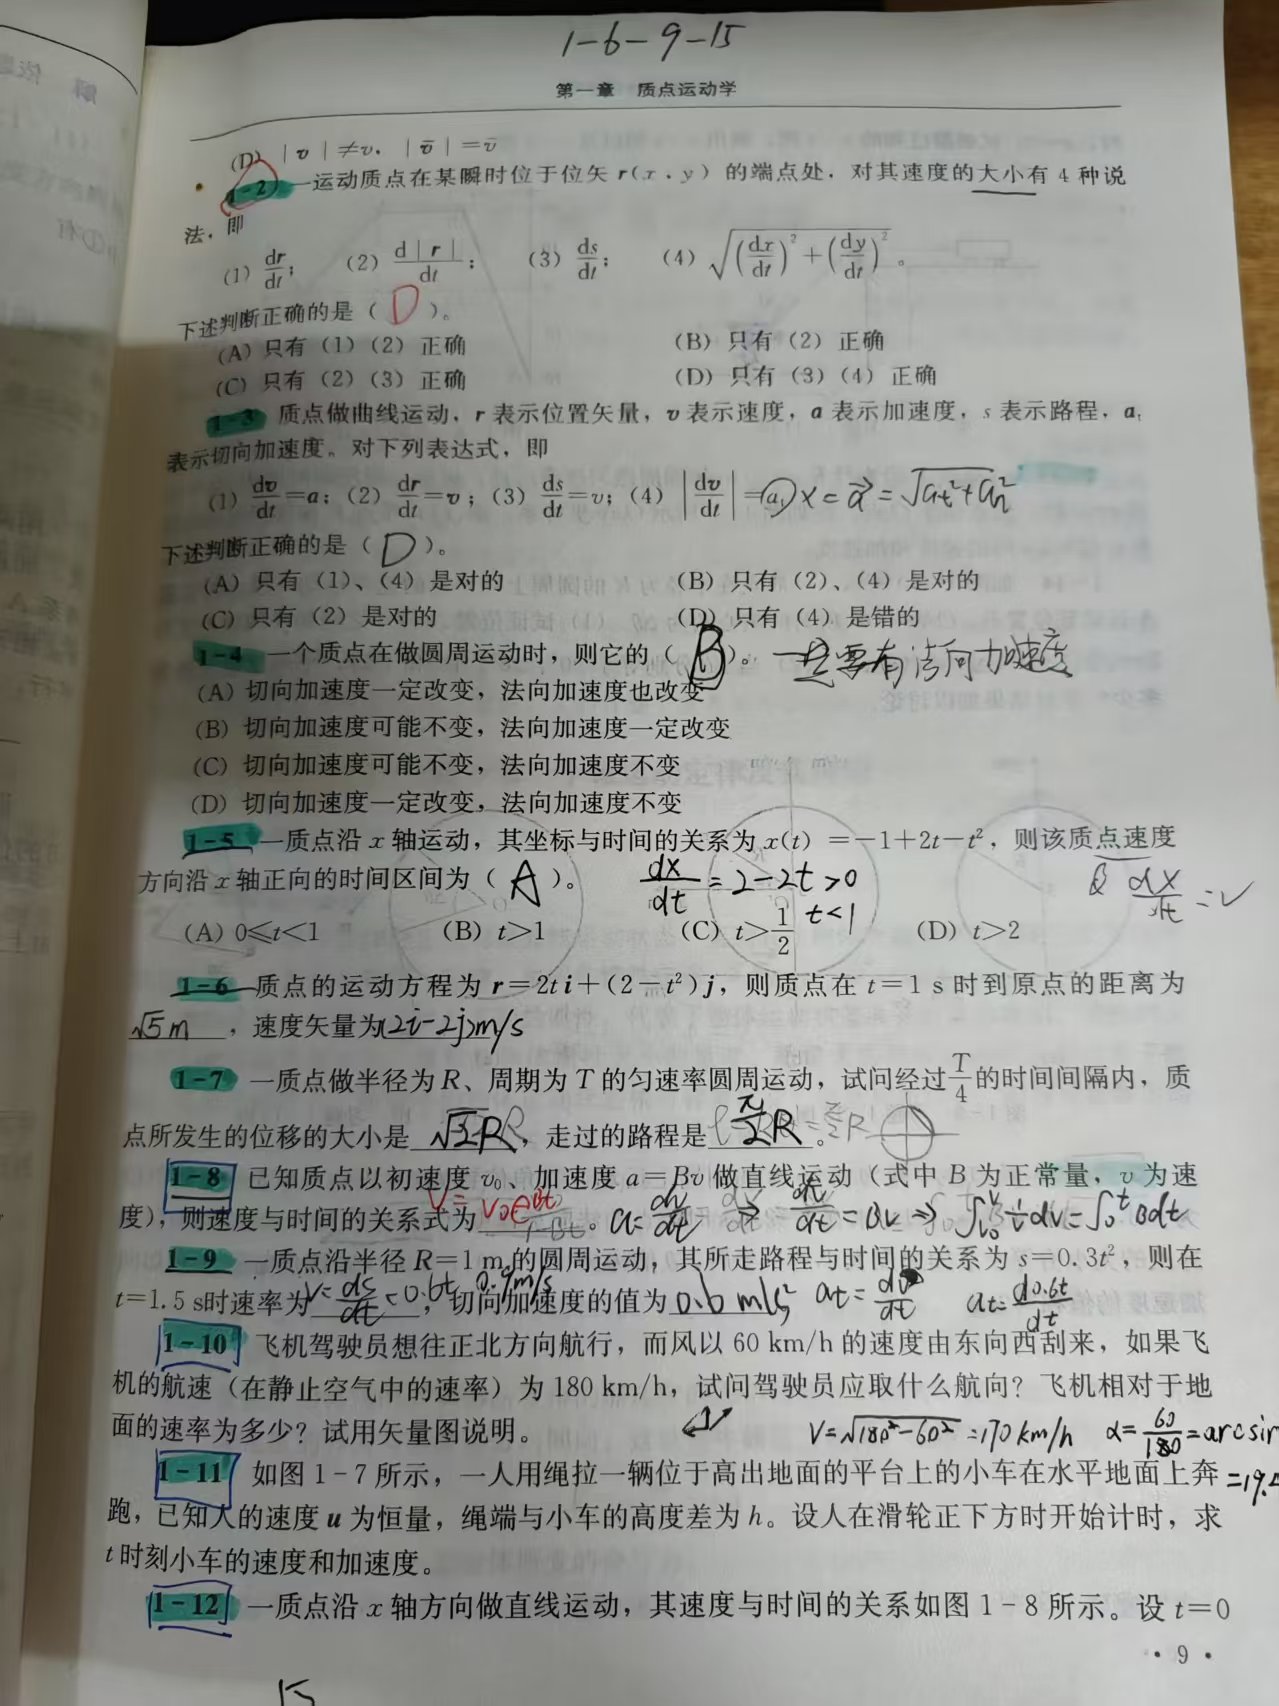 1-6-9-15
第一章 质点运动学
(D) |v|≠v, |v̄|=v̄
1-2 一运动质点在某瞬时位于位矢 r(x,y) 的端点处, 对其速度的大小有 4 种说
法, 即
(1) dr/dt; (2) d|r|/dt; (3) ds/dt; (4) √((dx/dt)²+(dy/dt)²)。
下述判断正确的是 ( D )。
(A) 只有 (1) (2) 正确 (B) 只有 (2) 正确
(C) 只有 (2) (3) 正确 (D) 只有 (3) (4) 正确
1-3 质点做曲线运动, r 表示位置矢量, v 表示速度, a 表示加速度, s 表示路程, aₜ
表示切向加速度。对下列表达式, 即
(1) dv/dt=a; (2) dr/dt=v; (3) ds/dt=v; (4) |dv/dt|=aₜ × = a⃗ = √(aₜ²+aₙ²)
下述判断正确的是 ( D )。
(A) 只有 (1)、(4) 是对的 (B) 只有 (2)、(4) 是对的
(C) 只有 (2) 是对的 (D) 只有 (4) 是错的
1-4 一个质点在做圆周运动时, 则它的 ( B )。 一定要有法向加速度
(A) 切向加速度一定改变, 法向加速度也改变
(B) 切向加速度可能不变, 法向加速度一定改变
(C) 切向加速度可能不变, 法向加速度不变
(D) 切向加速度一定改变, 法向加速度不变
1-5 一质点沿 x 轴运动, 其坐标与时间的关系为 x(t) =-1+2t-t², 则该质点速度
方向沿 x 轴正向的时间区间为 ( A )。 dx/dt = 2-2t>0 dx/dt = v
t<1
(A) 0≤t<1 (B) t>1 (C) t>1/2 (D) t>2
1-6 质点的运动方程为 r=2ti+(2-t²)j, 则质点在 t=1 s 时到原点的距离为
√5m , 速度矢量为(2i-2j)m/s
1-7 一质点做半径为 R、周期为 T 的匀速率圆周运动, 试问经过T/4的时间间隔内, 质
点所发生的位移的大小是 √2R , 走过的路程是 π/2R 。
1-8 已知质点以初速度 v₀、加速度 a=Bv 做直线运动 (式中 B 为正常量, v 为速
度), 则速度与时间的关系式为 v= v₀eᴮᵗ 。 a=dv/dt ⇒ dv/dt=Bv ⇒ ∫ᵥ₀ᵛ 1/v dv=∫₀ᵗ Bdt
1-9 一质点沿半径 R=1 m 的圆周运动, 其所走路程与时间的关系为 s=0.3t², 则在
t=1.5 s时速率为 v=ds/dt=0.6t 0.9m/s , 切向加速度的值为 0.6 m/s² at=dv/dt at=d0.6t/dt
1-10 飞机驾驶员想往正北方向航行, 而风以 60 km/h 的速度由东向西刮来, 如果飞
机的航速 (在静止空气中的速率) 为 180 km/h, 试问驾驶员应取什么航向? 飞机相对于地
面的速率为多少? 试用矢量图说明。 V=√(180²-60²)=170km/h α=60/180=arcsin
1-11 如图 1-7 所示, 一人用绳拉一辆位于高出地面的平台上的小车在水平地面上奔 =19.4
跑, 已知人的速度 u 为恒量, 绳端与小车的高度差为 h。设人在滑轮正下方时开始计时, 求
t 时刻小车的速度和加速度。
1-12 一质点沿 x 轴方向做直线运动, 其速度与时间的关系如图 1-8 所示。设 t=0
· 9 ·
15